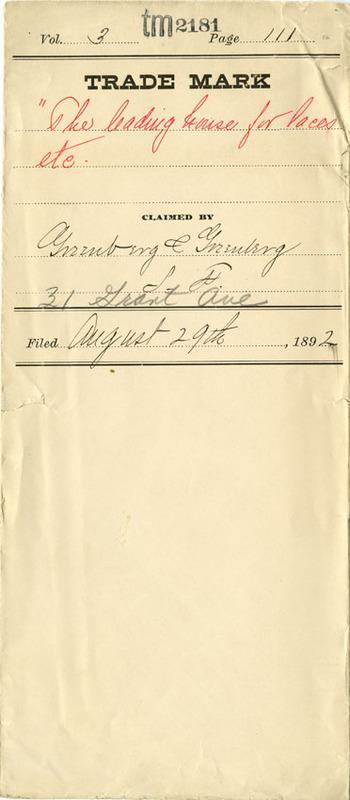 tm 2181
Vol. 3 Page 111
TRADE MARK
"The leading house for laces
etc.
CLAIMED BY
Greenberg & Greenberg
S. F.
31 Grant Ave
Filed August 29th, 1892